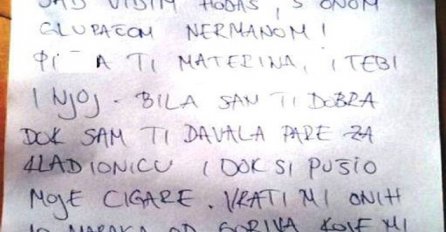 SAD VIDIM HODAŠ, S ONOM
GLUPAČOM NERMANOM!
PI A TI MATERINA, I TEBI
I NJOJ - BILA SAN TI DOBRA
DOK SAM TI DAVALA PARE ZA
KLADIONICU I DOK SI PUŠIO
MOJE CIGARE. VRATI MI ONIH
10 MARAKA OD GORIVA KOJE MI